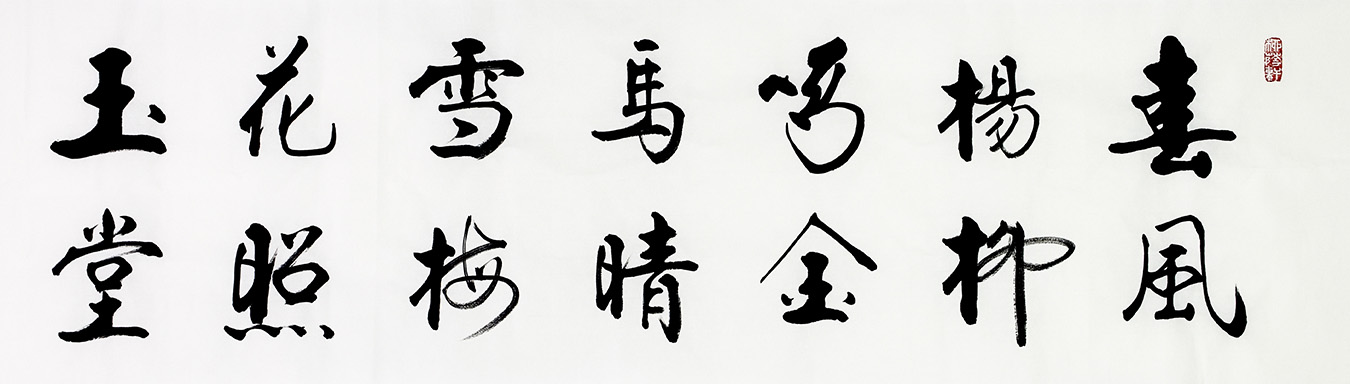 春風
楊柳
鳴金
馬晴
雪梅
花照
玉堂